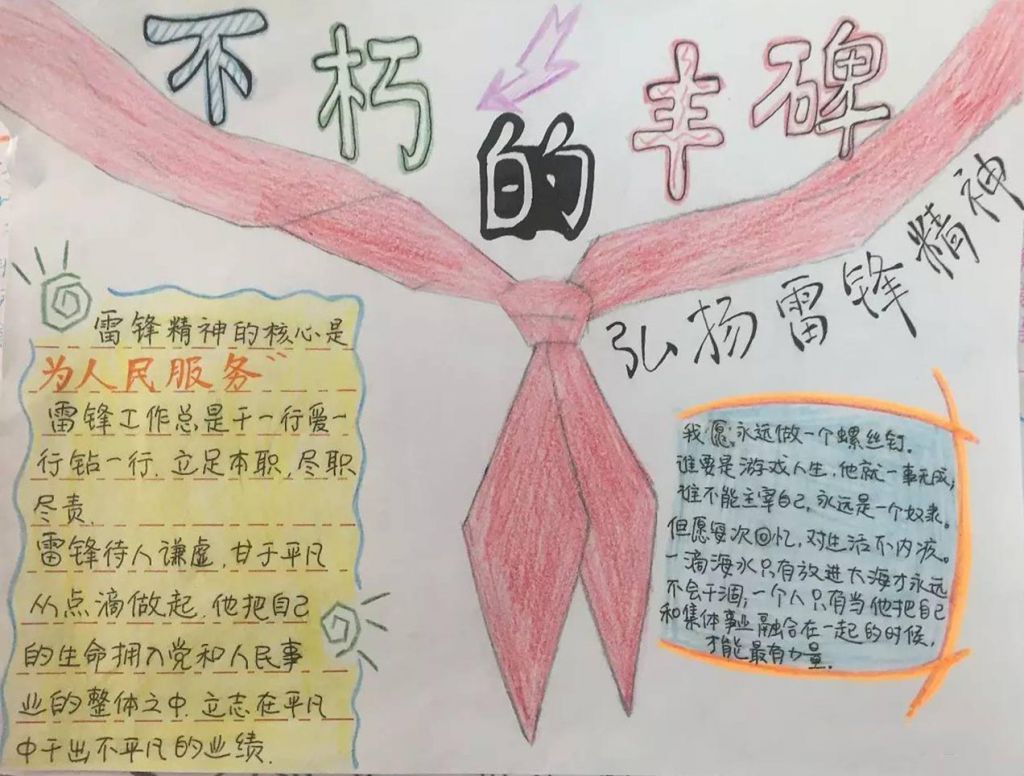 不朽的丰碑
弘扬雷锋精神
雷锋精神的核心是
为人民服务”
雷锋工作总是干一行爱一
行钻一行.立足本职,尽职
尽责.
雷锋待人谦虚,甘于平凡
从点滴做起.他把自己
的生命拥入党和人民事
业的整体之中.立志在平凡
中干出不平凡的业绩.
我愿永远做一个螺丝钉.
谁要是游戏人生,他就一事无成;
谁不能主宰自己,永远是一个奴隶。
但愿每次回忆,对生活不内疚。
一滴海水只有放进大海才永远
不会干涸,一个人只有当他把自己
和集体事业融合在一起的时候,
才能最有力量.